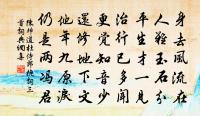 身去風流在
人難玉石分
平生才一見
治行已多聞
更覺知音少
還修地下文
他年九原淚
仍是兩馮君
陳師道杜侍郎挽詞三
首詞典網集